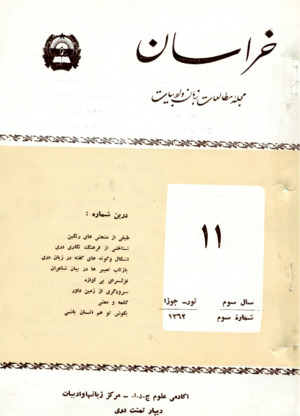 خراسان
مجلهٔ مطالعات زبان و ادبیات
درین شماره :
طیفی از منحنی های رنگین
شناختی از فرهنگ نگاری دری
اشکال وگونه های گفته در زبان دری
بازتاب تعبیر ها در بیان شاعران
غزلسرای بی آوازه
سرودگری از زمین داور
کلمه و معنی
بکوش تو هم انسان باشی
۱۱
سال سوم
ثور– جوزا
شمارهٔ سوم
۱۳۶۲
اکادمی علوم ج.د.ا. – مرکز زبانها و ادبیات
دیپارتمنت دری